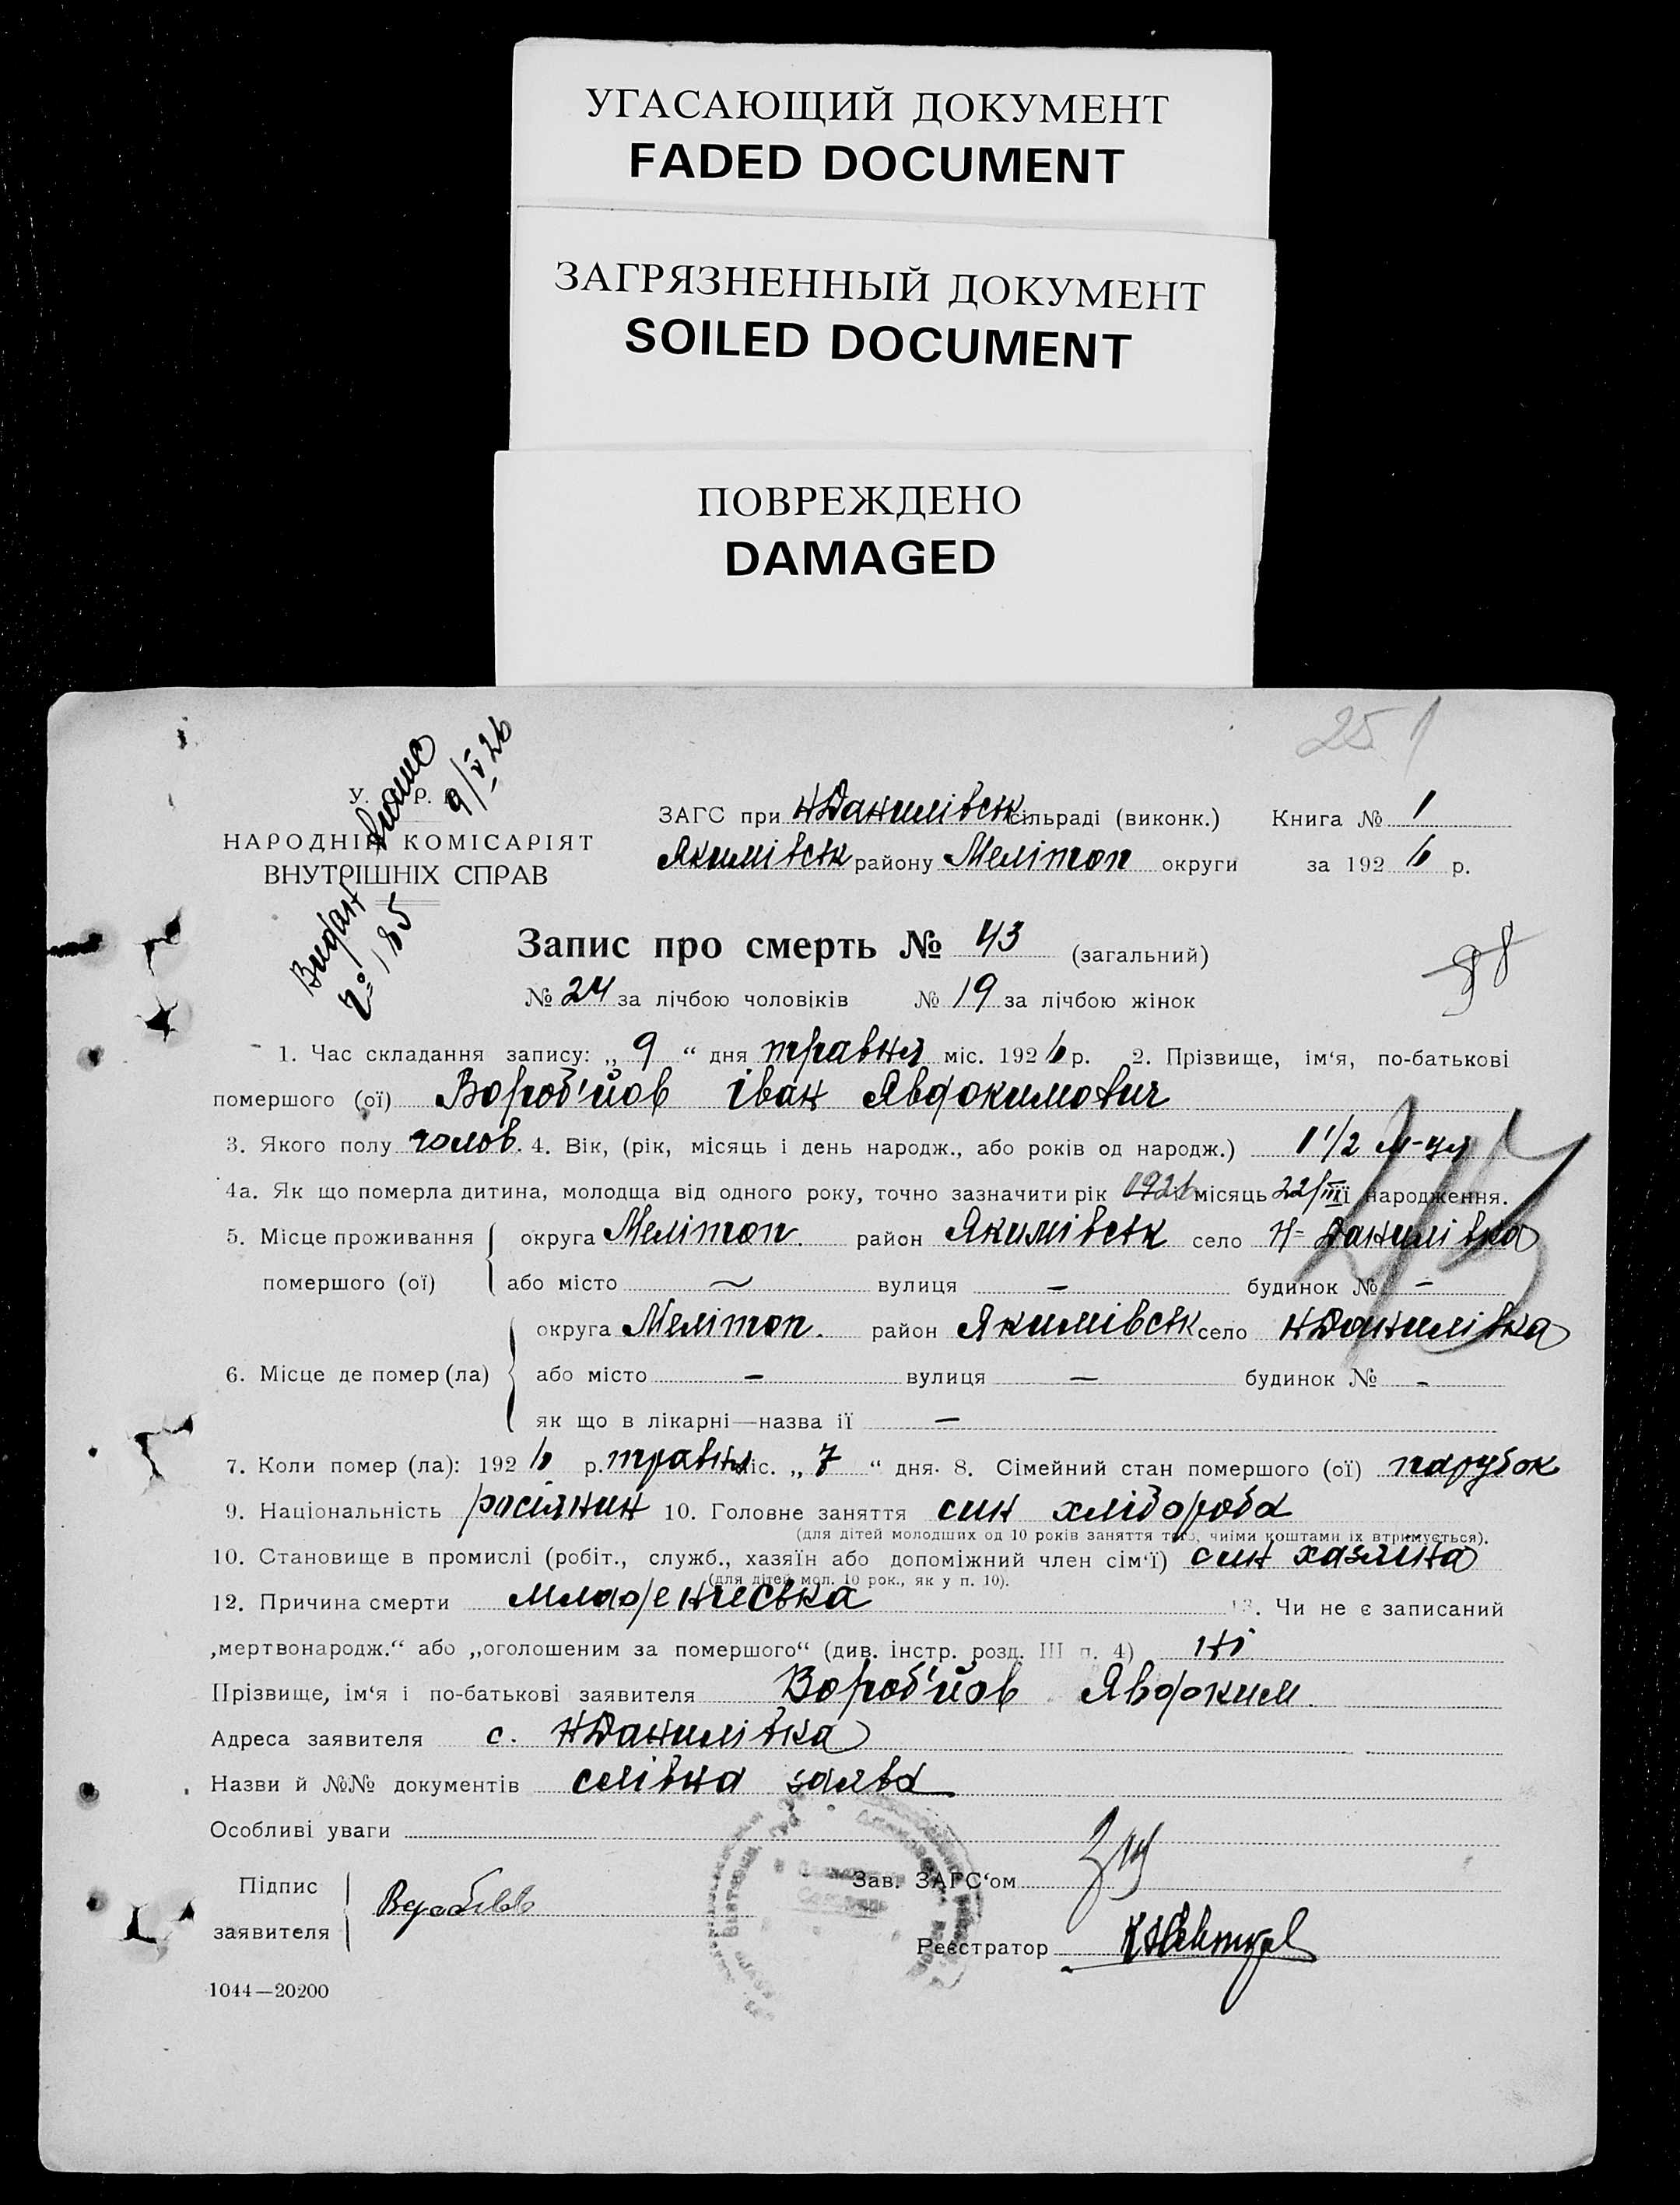 УГАСАЮЩИЙ ДОКУМЕНТ
FADED DOCUMENT
ЗАГРЯЗНЕННЫЙ ДОКУМЕНТ
SOILED DOCUMENT
ПОВРЕЖДЕНО
DAMAGED
25 1
У. Р.
9/V 26
НАРОДНІЙ КОМІСАРІЯТ
ВНУТРІШНІХ СПРАВ
Видан
№ 185
ЗАГС при НДанилівськ сільраді (виконк.) Книга № 1
Якимівськ району Мелітоп округи за 1926 р.
Запис про смерть № 43 (загальний)
№ 24 за лічбою чоловіків № 19 за лічбою жінок
1. Час складання запису: „ 9 “ дня травня міс. 1926 р. 2. Прізвище, ім‘я, по-батькові
помершого (ої) Вороб'йов Іван Явдокимович
3. Якого полу чолов. 4. Вік, (рік, місяць і день народж., або років од народж.) 1 1/2 м-ця
4а. Як що померла дитина, молодща від одного року, точно зазначити рік 1926 місяць 22/III і народження.
5. Місце проживання помершого (ої) округа Мелітоп. район Якимівськ село Н-Данилівка
або місто ~ вулиця - будинок № -
6. Місце де помер (ла) округа Мелітоп. район Якимівськ село НДанилівка
або місто - вулиця - будинок № -
як що в лікарні—назва її -
7. Коли помер (ла): 1926 р. травня міс. „ 7 “ дня. 8. Сімейний стан помершого (ої) парубок
9. Національність росіянин 10. Головне заняття син хлібороба
(для дітей молодших од 10 років заняття того, чиїми коштами їх втримується).
10. Становище в промислі (робіт., служб., хазяїн або допоміжний член сім‘ї) син хазяїна
(для дітей мол. 10 рок., як у п. 10).
12. Причина смерти Младенческа 13. Чи не є записаний
„мертвонародж.“ або „оголошеним за помершого“ (див. інстр. розд. III п. 4) ні
Прізвище, ім‘я і по-батькові заявителя Вороб'йов Явдоким.
Адреса заявителя с. НДанилівка
Назви й №№ документів слівна заява
Особливі уваги
Підпис заявителя
Зав. ЗАГС‘ом
Реєстратор
1044—20200